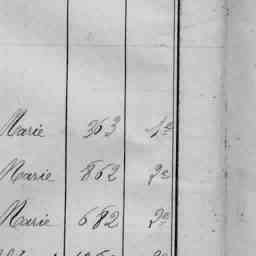 Marie 363 1e
Marie 862 2e
Marie 682 2e